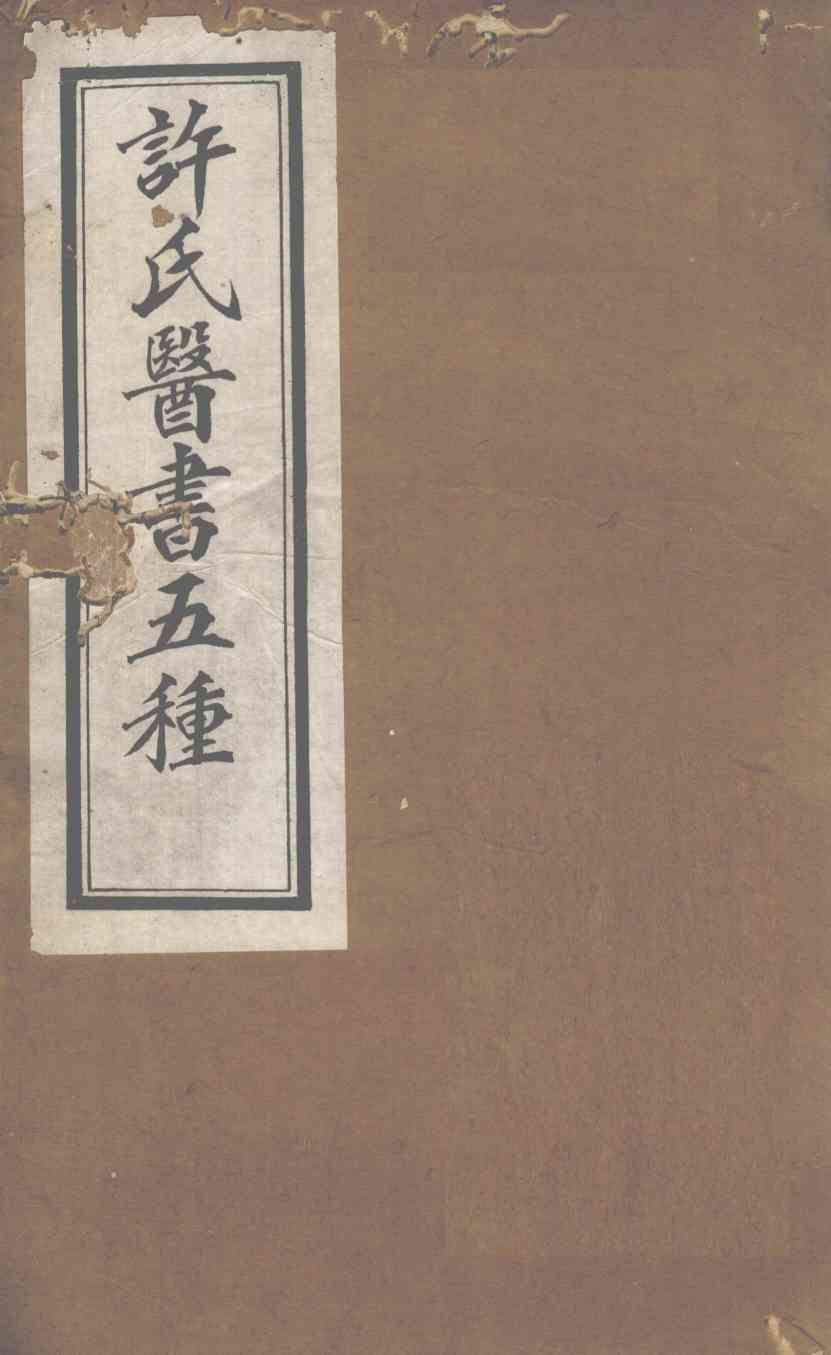 許氏醫書五種